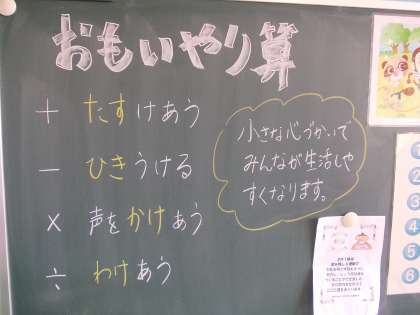 おもいやり算
＋ たすけあう
－ ひきうける
× 声をかけあう
÷ わけあう
小さな心づかいで
みんなが生活しや
すくなります。
1
2
3
4
5
6